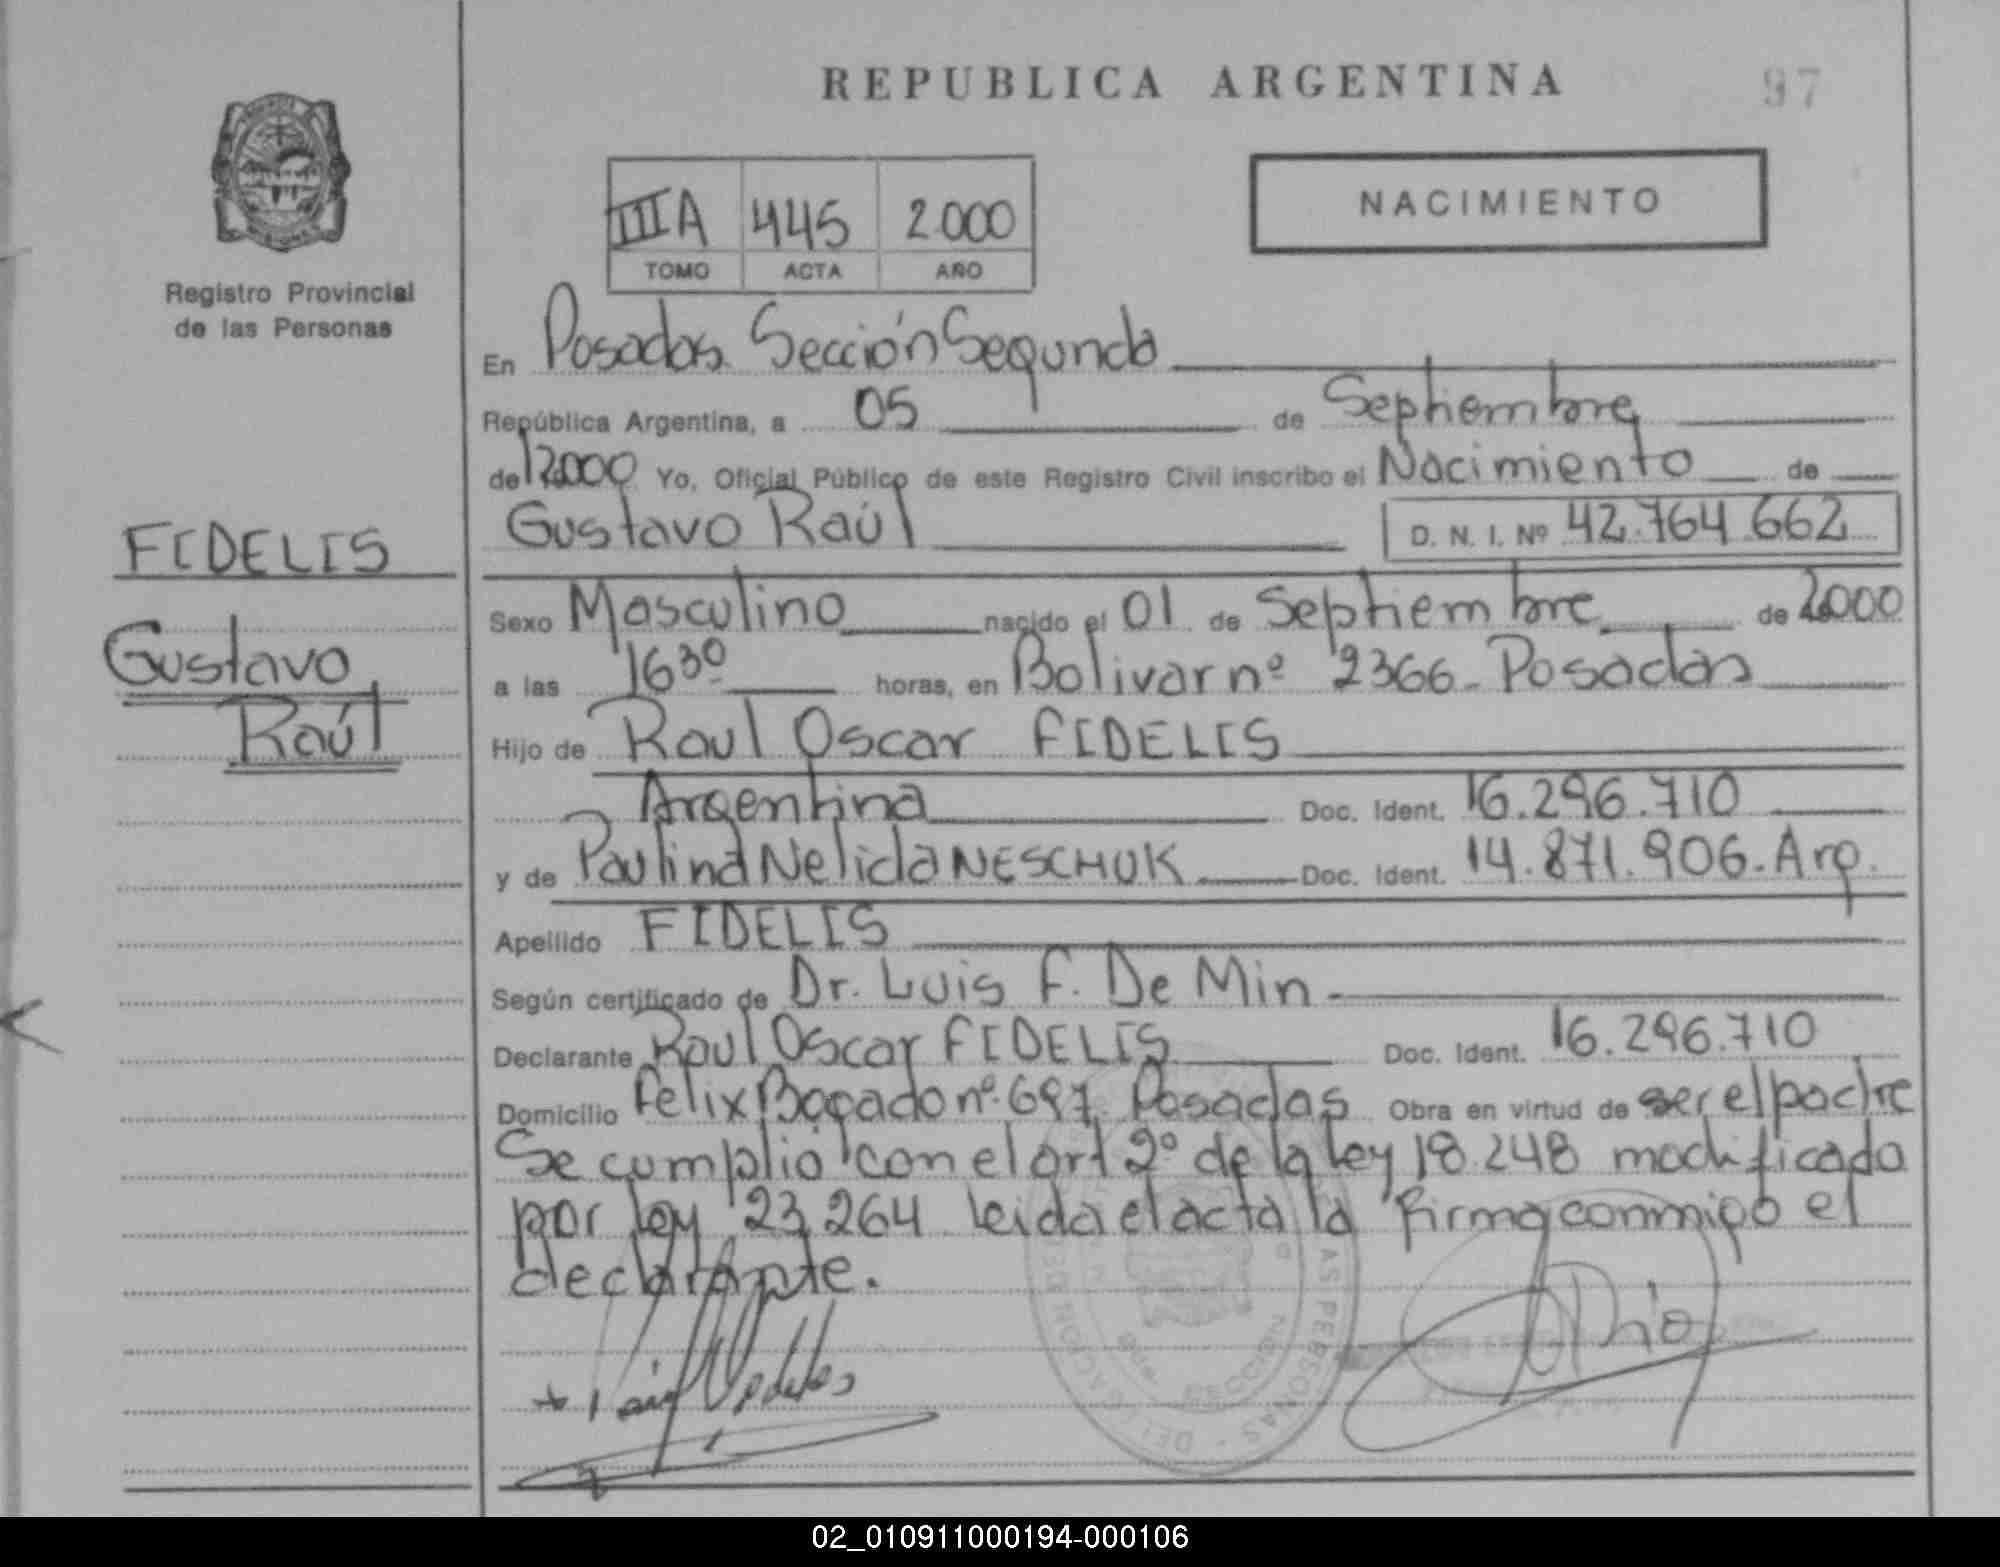 REPUBLICA ARGENTINA
97
NACIMIENTO
IIIA 445 2.000
TOMO ACTA AÑO
Registro Provincial
de las Personas
En Posadas. Sección Segunda
República Argentina, a 05 de Septiembre
de 2000 Yo, Oficial Público de este Registro Civil inscribo el Nacimiento de
Gustavo Raúl D. N. I. Nº 42.764.662
FIDELIS
Gustavo
Raúl
Sexo Masculino nacido el 01 de Septiembre de 2000
a las 16 30 horas, en Bolivar nº 2366. Posadas
Hijo de Raul Oscar FIDELIS
Argentina Doc. Ident. 16.296.710
y de Paulina Nelida NESCHUK Doc. Ident. 14.871.906. Arg.
Apellido FIDELIS
Según certificado de Dr. Luis F. De Min
Declarante Raul Oscar FIDELIS Doc. Ident. 16.296.710
Domicilio Felix Bogado nº 697 Posadas Obra en virtud de ser el padre
Se cumplio con el art 2º de la ley 18.248 modificada
por ley 23.264 leida el acta la firma conmigo el
declarante.
DE LAS PERSONAS - DELEGACION
SECCION
02_010911000194-000106